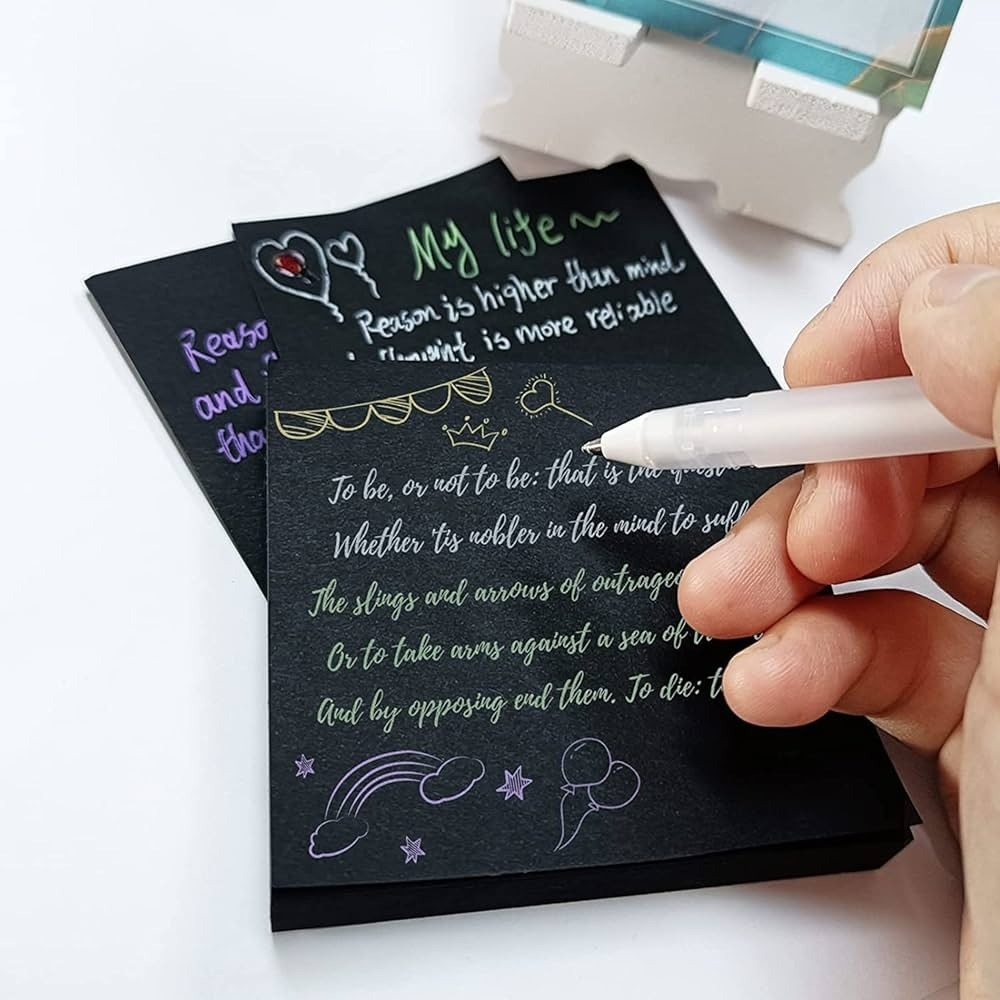 My life
Reason is higher than mind
is more reliable
Reaso
and
tha
To be, or not to be: that is the
Whether 'tis nobler in the mind to suff
The slings and arrows of outrageo
Or to take arms against a sea of
And by opposing end them. To die: t